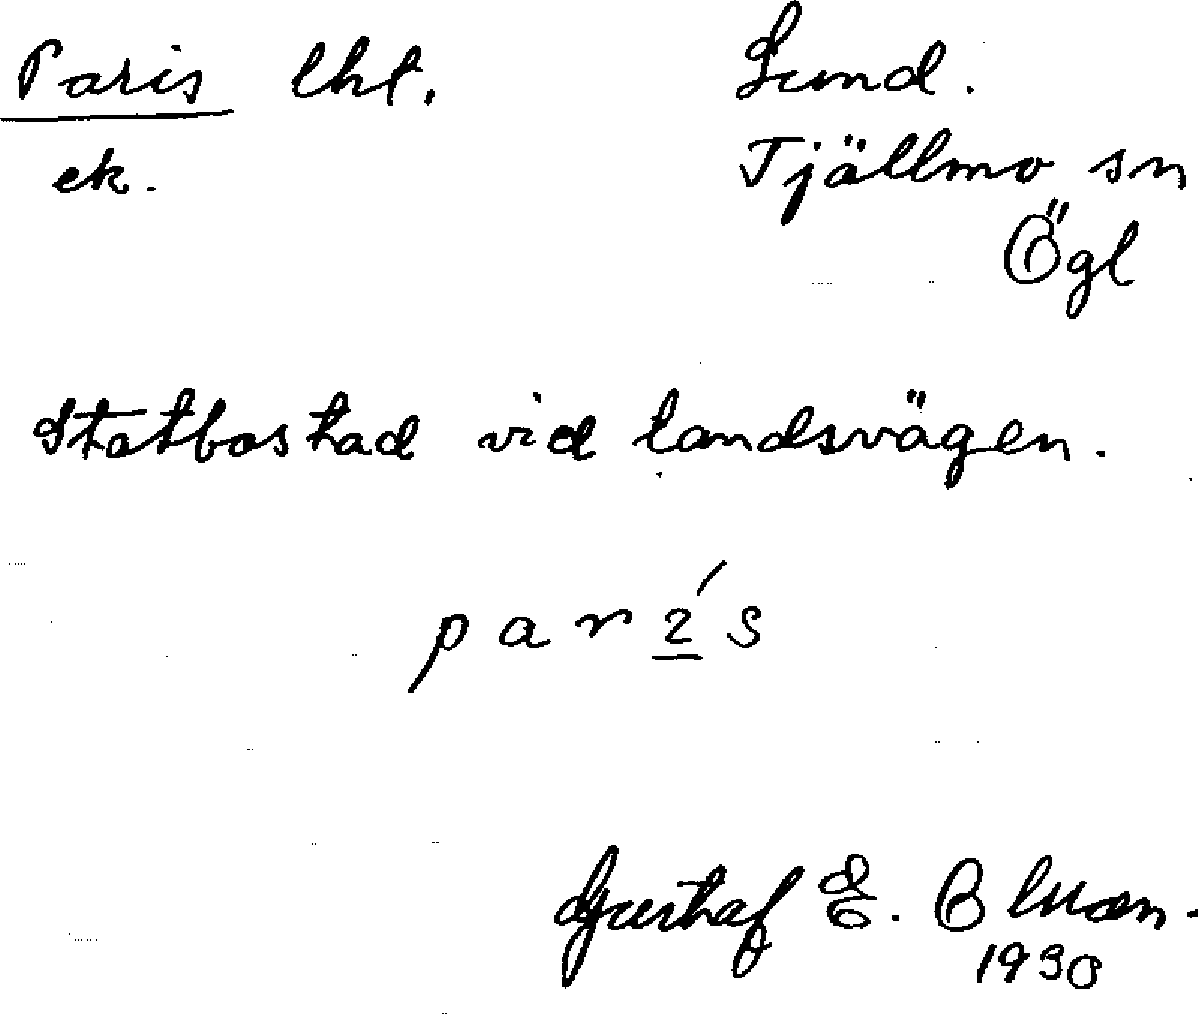 Paris lht. Lund.
ek. Tjällmo sn
Ögl
Statbostad vid landsvägen.
parís
Gustaf E.
1930